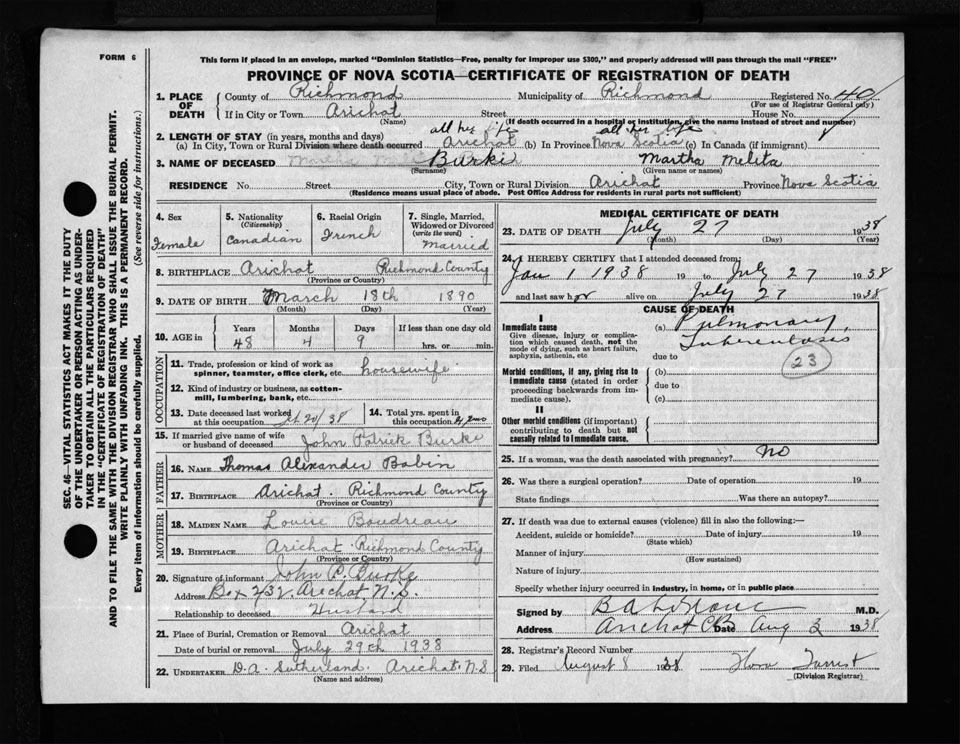 FORM 6
This form if placed in an envelope, marked "Dominion Statistics—Free, penalty for improper use $300," and properly addressed will pass through the mail "FREE"
PROVINCE OF NOVA SCOTIA—CERTIFICATE OF REGISTRATION OF DEATH
SEC. 46—VITAL STATISTICS ACT MAKES IT THE DUTY
OF THE UNDERTAKER OR PERSON ACTING AS UNDER-
TAKER TO OBTAIN ALL THE PARTICULARS REQUIRED
IN THE "CERTIFICATE OF REGISTRATION OF DEATH"
AND TO FILE THE SAME WITH THE DIVISION REGISTRAR WHO SHALL ISSUE THE BURIAL PERMIT.
WRITE PLAINLY WITH UNFADING INK. THIS IS A PERMANENT RECORD.
Every item of information should be carefully supplied. (See reverse side for instructions.)
1. PLACE OF DEATH
County of Richmond Municipality of Richmond Registered No. 40
(For use of Registrar General only)
If in City or Town Arichat Street House No.
(Name) (If death occurred in a hospital or institution, give the name instead of street and number)
2. LENGTH OF STAY (in years, months and days) all her life all her life
(a) In City, Town or Rural Division where death occurred Arichat (b) In Province Nova Scotia (c) In Canada (if immigrant)
3. NAME OF DECEASED Burke Martha Melita
(Surname) (Given name or names)
RESIDENCE No. Street City, Town or Rural Division Arichat Province Nova Scotia
(Residence means usual place of abode. Post Office Address for residents in rural parts not sufficient)
4. Sex
Female
5. Nationality
(Citizenship)
Canadian
6. Racial Origin
French
7. Single, Married,
Widowed or Divorced
(write the word)
Married
8. BIRTHPLACE Arichat Richmond County
(Province or Country)
9. DATE OF BIRTH March 18th 1890
(Month) (Day) (Year)
10. AGE in
Years Months Days If less than one day old
48 4 9 hrs. or min.
OCCUPATION
11. Trade, profession or kind of work as
spinner, teamster, office clerk, etc. housewife
12. Kind of industry or business, as cotton-
mill, lumbering, bank, etc.
13. Date deceased last worked
at this occupation 20/38
14. Total yrs. spent in
this occupation
15. If married give name of wife
or husband of deceased John Patrick Burke
FATHER
16. NAME Thomas Alexander Babin
17. BIRTHPLACE Arichat. Richmond County
(Province or Country)
MOTHER
18. MAIDEN NAME Louise Boudreau
19. BIRTHPLACE Arichat. Richmond County
(Province or Country)
20. Signature of informant John P. Burke
Address Box 232, Arichat, N.S.
Relationship to deceased Husband
21. Place of Burial, Cremation or Removal Arichat
Date of burial or removal July 29th 1938
22. UNDERTAKER D. A. Sutherland Arichat, N.S
(Name and address)
MEDICAL CERTIFICATE OF DEATH
23. DATE OF DEATH July 27 1938
(Month) (Day) (Year)
24. I HEREBY CERTIFY that I attended deceased from:
Jan 1 1938 19 to July 27 1938
and last saw her alive on July 27 1938
CAUSE OF DEATH
I
Immediate cause
Give disease, injury or complica-
tion which caused death, not the
mode of dying, such as heart failure,
asphyxia, asthenia, etc
(a) Pulmonary
Tuberculosis
due to
23
Morbid conditions, if any, giving rise to
immediate cause (stated in order
proceeding backwards from im-
mediate cause).
(b)
due to
(c)
II
Other morbid conditions (if important)
contributing to death but not
causally related to immediate cause.
25. If a woman, was the death associated with pregnancy? no
26. Was there a surgical operation? Date of operation 19
State findings Was there an autopsy?
27. If death was due to external causes (violence) fill in also the following:—
Accident, suicide or homicide? Date of injury 19
(State which)
Manner of injury
(How sustained)
Nature of injury
Specify whether injury occurred in industry, in home, or in public place
Signed by M.D.
Address Arichat CB Date Aug 3 1938
28. Registrar's Record Number
29. Filed August 8 1938 Flora
(Division Registrar)